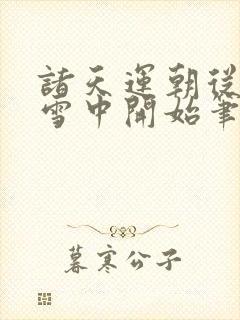 諸天運朝從
雪中開始筆
暮寒公子